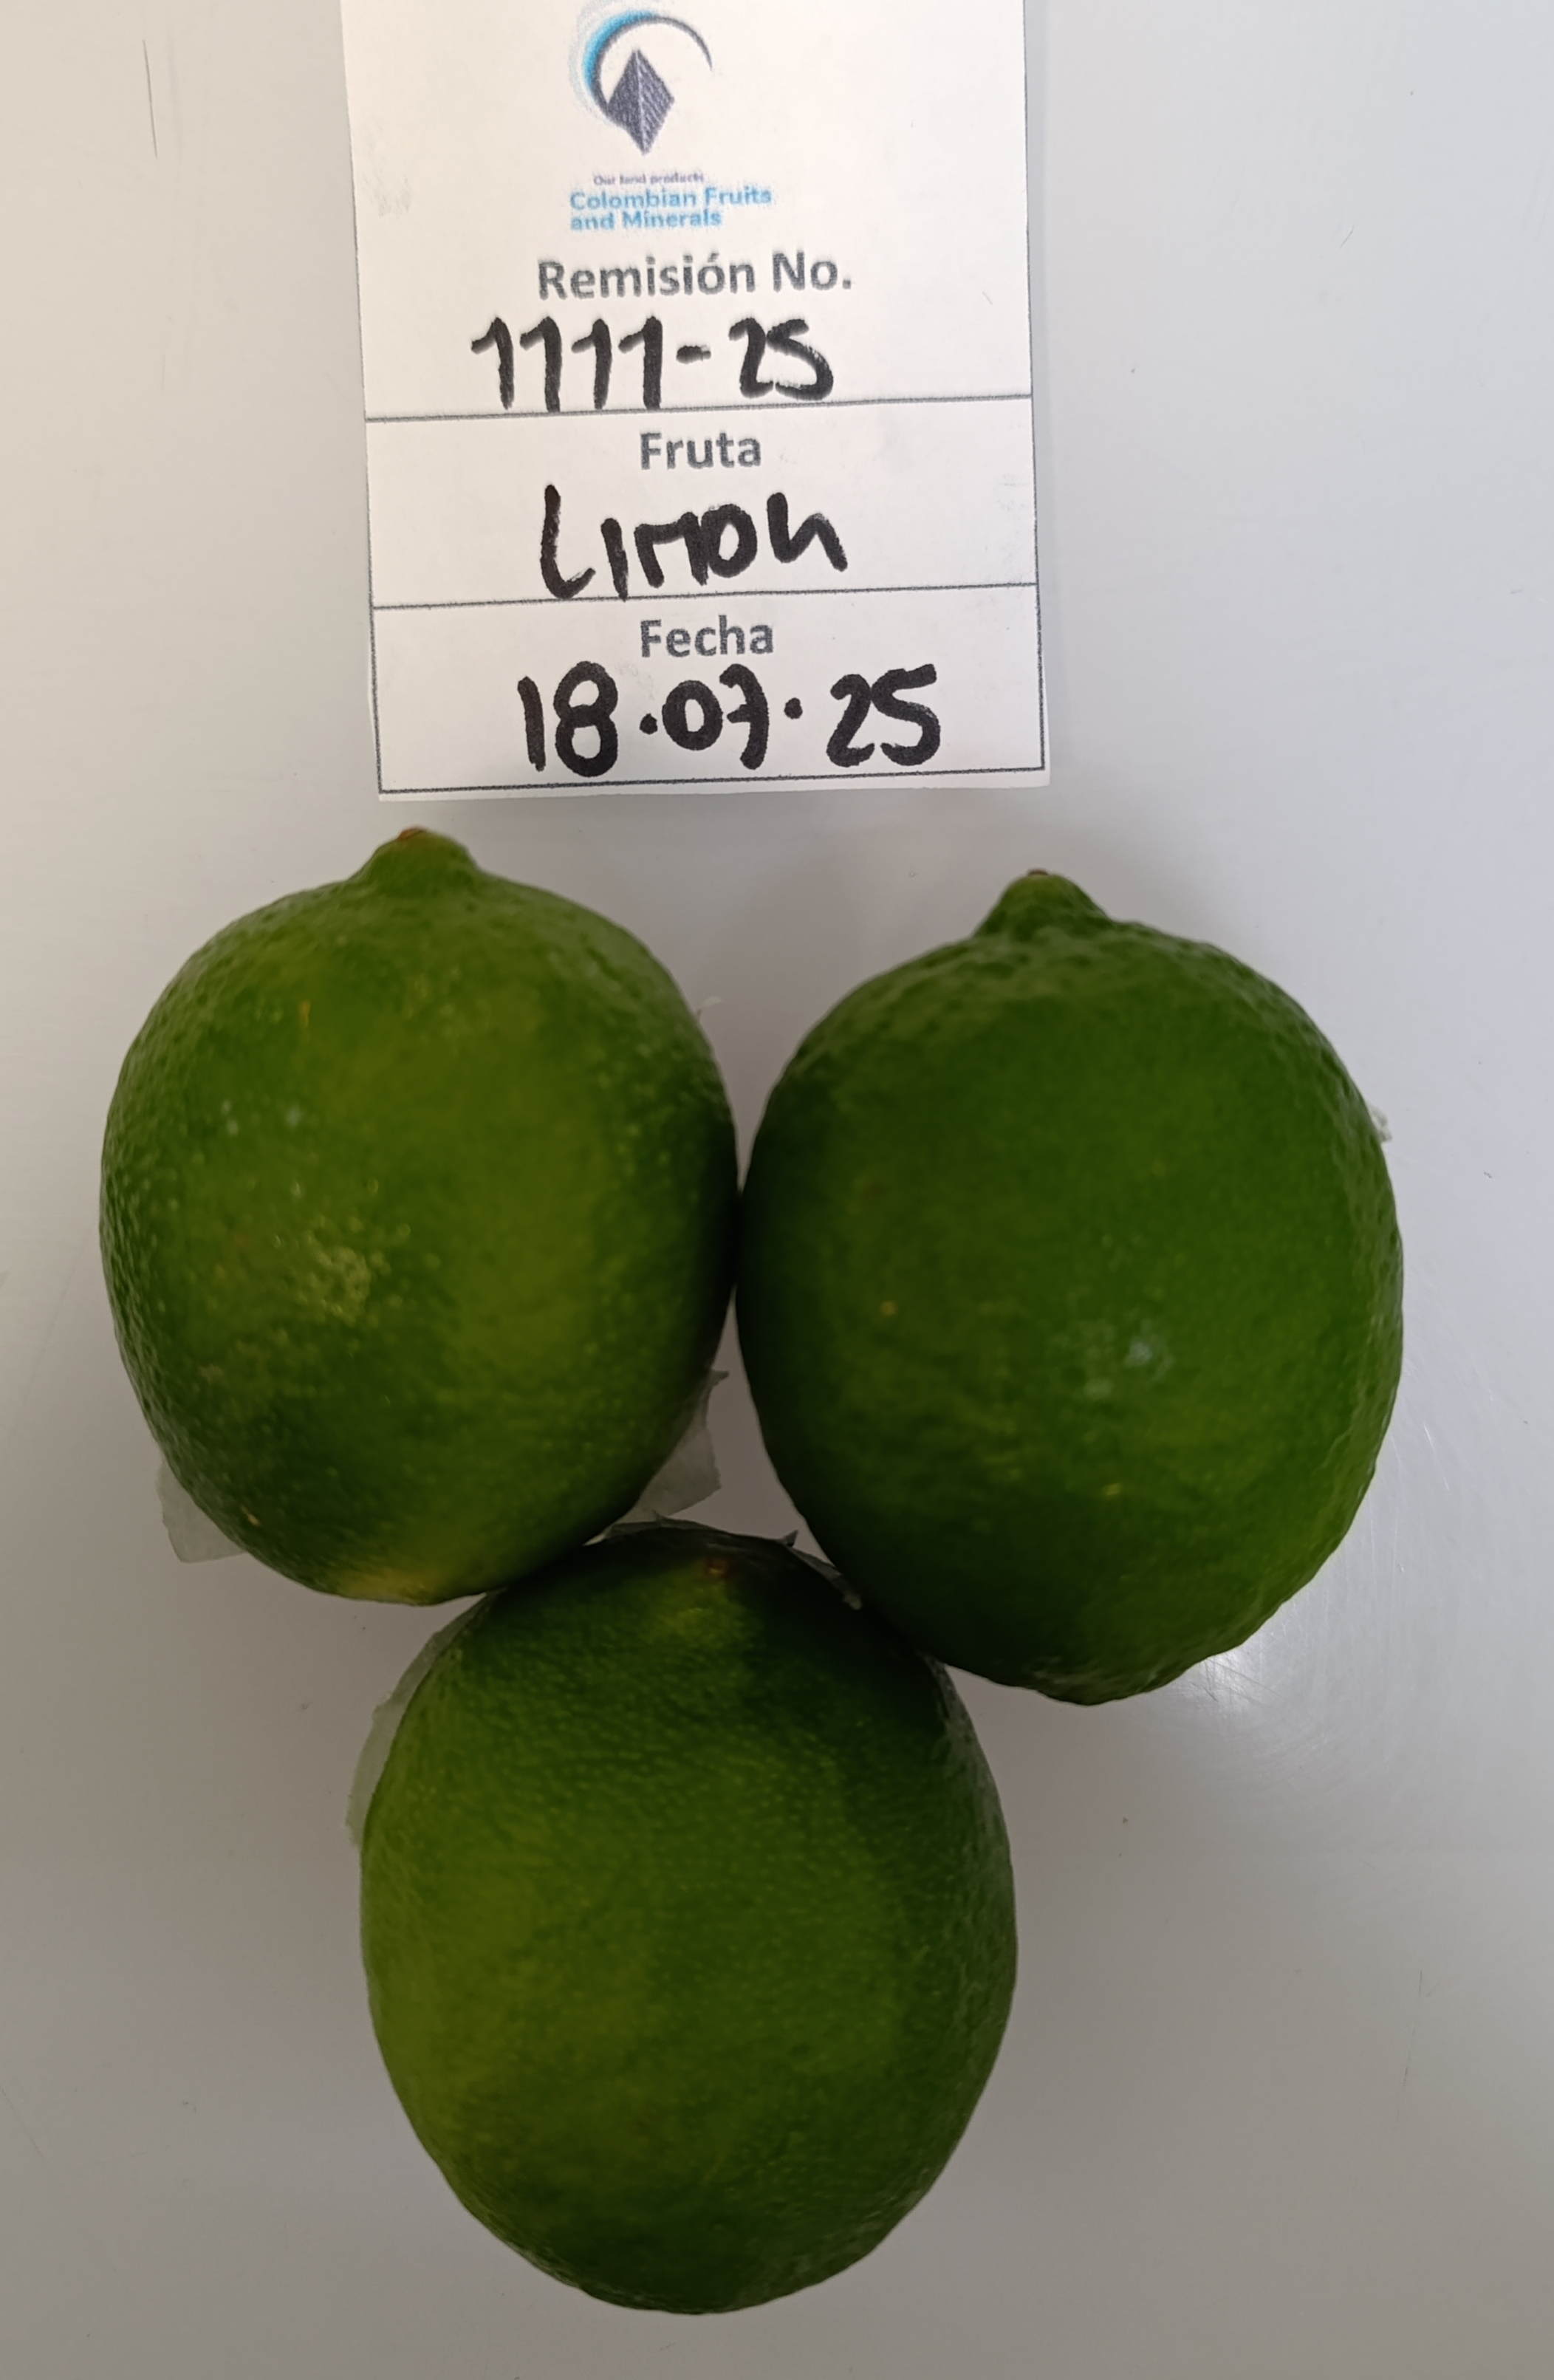 Our land products
Colombian Fruits
and Minerals
Remisión No.
1111-25
Fruta
Limon
Fecha
18.07.25